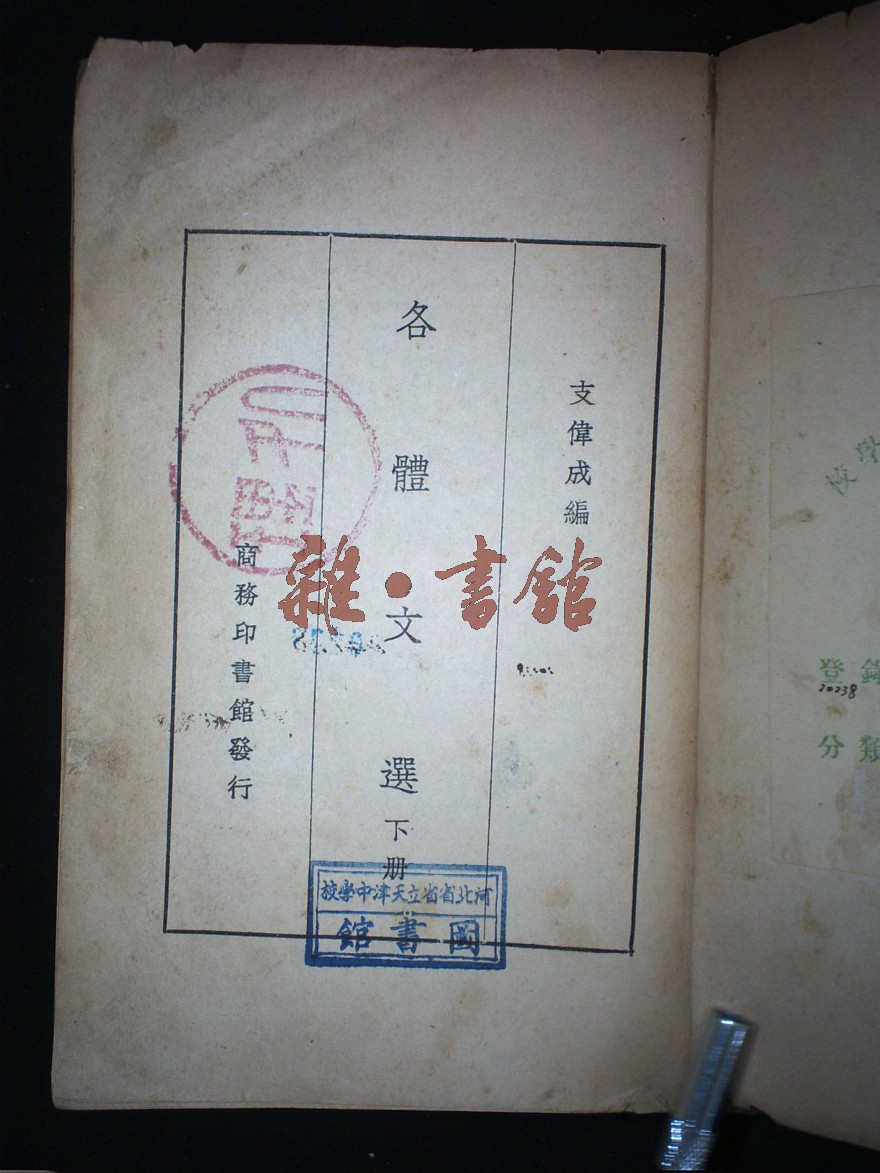 支偉成編
各體文選
下册
商務印書館發行
雜·書館
河北省省立天津中學校
圖書館
登錄
20238
分類